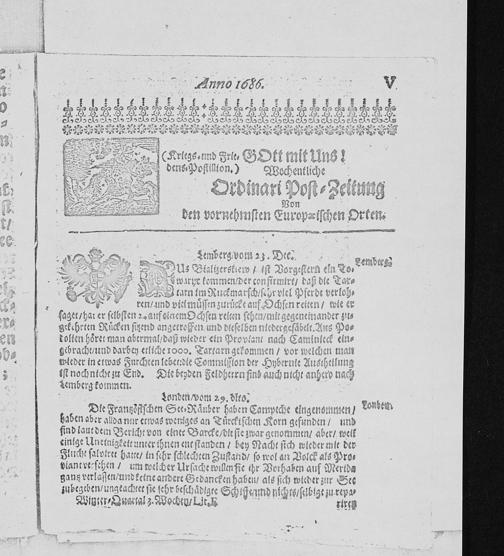 Anno 1686. V
(Kriegs- und Frie- GOtt mit Uns!
dens-Postillion.) Wochentliche
Ordinari Post-Zeitung
Von
den vornehmsten Europæischen Orten.
Lemberg/vom 23. Dec.
Lemberg.
Us Bializerkiew / ist Vorgestern ein To-
kommen/der confirmirt/ daß die Tar-
tarn im Ruckmarsch/sehr viel Pferde verloh-
ren/ und viel müssen zurücke auf Ochsen reiten / wie er
saget/hat er selbsten 2. auf einem Ochsen reiten sehen/mit gegeneinander zu-
gekehrten Rücken sitzend angetroffen und dieselben niedergesäbelt. Aus Po-
dolien höret man abermal/daß wieder ein Proviant nach Caminieck ein-
gebracht/und darbey etliche 1000. Tartarn gekommen/ vor welchen man
wieder in etwas Furchten lebet/die Commission der Hyberne Austheilung
ist noch nicht zu End. Die beyden Feldherrn sind auch nicht anhero nach
Lemberg kommen.
Londen/vom 29. dito.
Londen.
Die Frantzösischen See-Räuber haben Campeche eingenommen/
haben aber allda nur etwas weniges an Türckischen Korn gefunden / und
sind laut dem Bericht von einer Barcke/die sie zwar genommen/ aber/ weil
einige Uneinigkeit unter ihnen entstanden / bey Nacht sich wieder mit der
Flucht salviret hatte/ in sehr schlechten Zustand/ so wol an Volck als Pro-
viant versehen / um welcher Ursache willen sie ihr Vorhaben auf Merida
gantz verlassen/und keine andere Gedancken haben/ als sich wieder zur See
zubegeben/ungeachtet sie sehr beschädigte Schiffe/und nichts/selbige zu repa-
Winter-Quartal 3. Wochen/Lit. E. riren